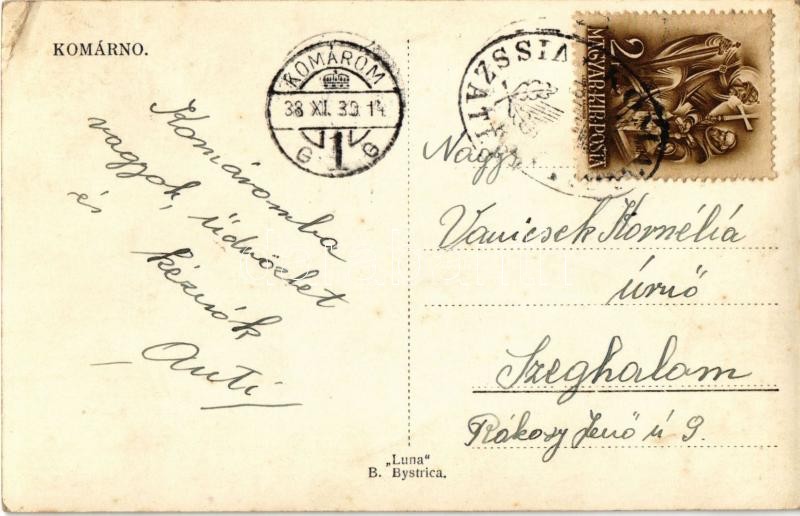 KOMÁRNO.
KOMÁROM
38 XI. 30. 14
1
G G
VISSZATÉRT
2
MAGYAR KIR. POSTA
Komáromba
vagyok, üdvözlet
és kézcsók
Anti
Nagys
Vanicsek Kornélia
úrnő
Szeghalom
Rákosy Jenő ú 9.
„Luna"
B. Bystrica.